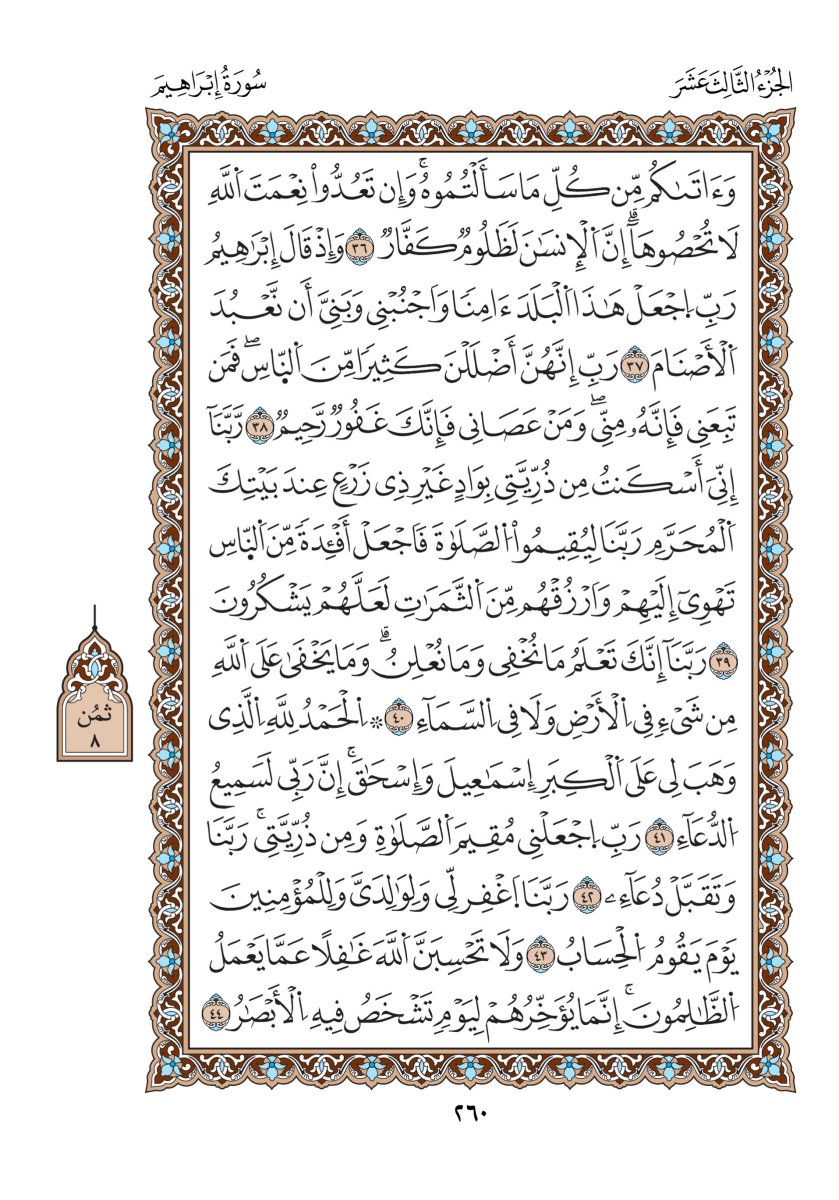 الجُزْءُ الثَّالِثَ عَشَرَ
سُورَةُ إِبْرَاهِيمَ
وَءَاتَىٰكُم مِّن كُلِّ مَا سَأَلْتُمُوهُۚ وَإِن تَعُدُّواْ نِعْمَتَ اَللَّهِ
لَا تُحْصُوهَاۗ إِنَّ اَلْإِنسَٰنَ لَظَلُومٌ كَفَّارٌ ٣٦ وَإِذْ قَالَ إِبْرَٰهِيمُ
رَبِّ اِجْعَلْ هَٰذَا اَلْبَلَدَ ءَامِنًا وَاَجْنُبْنِى وَبَنِىَّ أَن نَّعْبُدَ
اَلْأَصْنَامَ ٣٧ رَبِّ إِنَّهُنَّ أَضْلَلْنَ كَثِيرًا مِّنَ اَلنَّاسِۖ فَمَن
تَبِعَنِى فَإِنَّهُۥ مِنِّىۖ وَمَنْ عَصَانِى فَإِنَّكَ غَفُورٌ رَّحِيمٌ ٣٨ رَّبَّنَآ
إِنِّىَ أَسْكَنتُ مِن ذُرِّيَّتِى بِوَادٍ غَيْرِ ذِى زَرْعٍ عِندَ بَيْتِكَ
اَلْمُحَرَّمِ رَبَّنَا لِيُقِيمُواْ اُلصَّلَوٰةَ فَاَجْعَلْ أَفْـِٔدَةً مِّنَ اَلنَّاسِ
تَهْوِىٓ إِلَيْهِمْ وَاَرْزُقْهُم مِّنَ اَلثَّمَرَٰتِ لَعَلَّهُمْ يَشْكُرُونَ
٣٩ رَبَّنَآ إِنَّكَ تَعْلَمُ مَا نُخْفِى وَمَا نُعْلِنُۗ وَمَا يَخْفَىٰ عَلَى اَللَّهِ
مِن شَىْءٍ فِى اِلْأَرْضِ وَلَا فِى اِلسَّمَآءِ ٤٠ * اِلْحَمْدُ لِلَّهِ اِلَّذِى
وَهَبَ لِى عَلَى اَلْكِبَرِ إِسْمَٰعِيلَ وَإِسْحَٰقَۚ إِنَّ رَبِّى لَسَمِيعُ
اُلدُّعَآءِ ٤١ رَبِّ اِجْعَلْنِى مُقِيمَ اَلصَّلَوٰةِ وَمِن ذُرِّيَّتِىۚ رَبَّنَا
وَتَقَبَّلْ دُعَآءِۦ ٤٢ رَبَّنَا اَغْفِر لِّى وَلِوَٰلِدَىَّ وَلِلْمُؤْمِنِينَ
يَوْمَ يَقُومُ اُلْحِسَابُ ٤٣ وَلَا تَحْسِبَنَّ اَللَّهَ غَٰفِلًا عَمَّا يَعْمَلُ
اُلظَّٰلِمُونَۚ إِنَّمَا يُؤَخِّرُهُمْ لِيَوْمٍ تَشْخَصُ فِيهِ اِلْأَبْصَٰرُ ٤٤
ثمُن
٨
٢٦٠